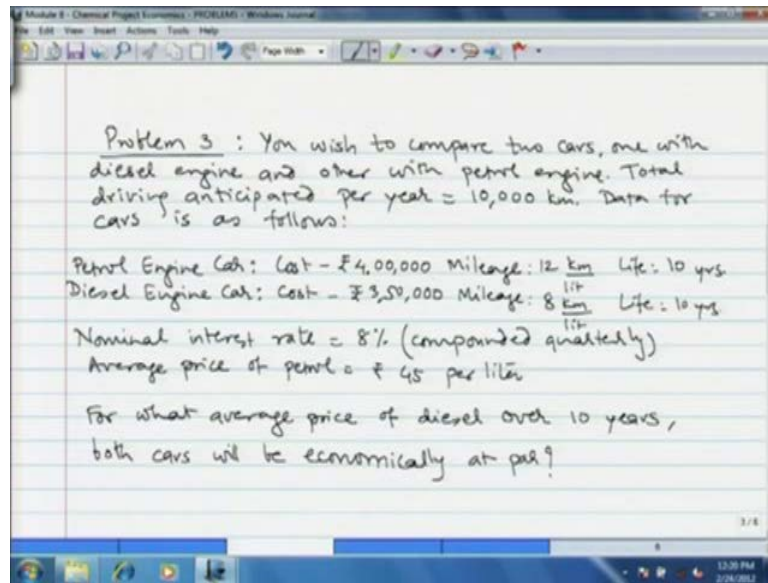 Module 8 - Chemical Project Economics - PROBLEMS - Windows Journal
File Edit View Insert Actions Tools Help
Page Width
Problem 3 : You wish to compare two cars, one with
diesel engine and other with petrol engine. Total
driving anticipated per year = 10,000 km. Data for
cars is as follows:
Petrol Engine Car: Cost - ₹ 4,00,000 Mileage: 12 km/lit Life: 10 yrs
Diesel Engine Car: Cost - ₹ 3,50,000 Mileage: 8 km/lit Life: 10 yrs
Nominal interest rate = 8% (compounded quarterly)
Average price of petrol = ₹ 45 per liter
For what average price of diesel over 10 years,
both cars will be economically at par?
3/8
8
12:20 PM
2/24/2012